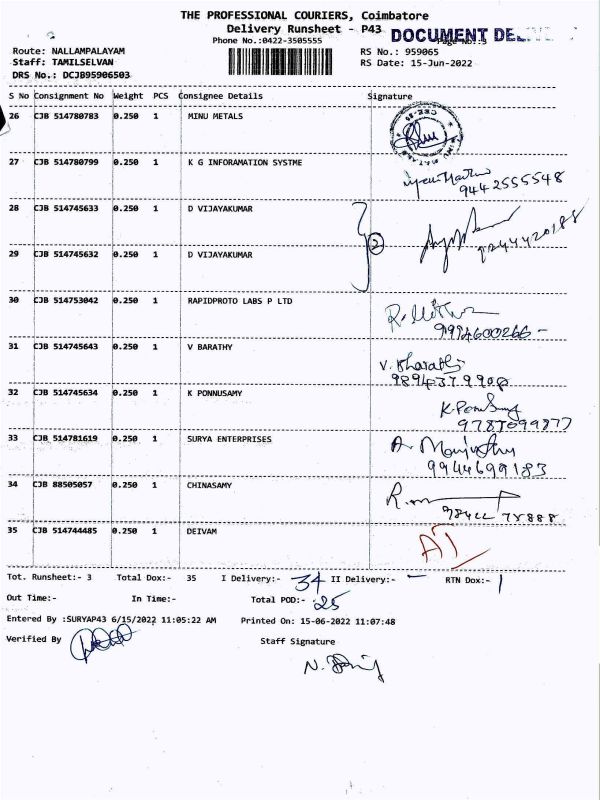 THE PROFESSIONAL COURIERS, Coimbatore
Delivery Runsheet - P43
DOCUMENT DEL
Phone No.:0422-3505555
Route: NALLAMPALAYAM
RS No.: 959065
Staff: TAMILSELVAN
RS Date: 15-Jun-2022
DRS No.: DCJB95906503
S No Consignment No Weight PCS Consignee Details Signature
26 CJB 514780783 0.250 1 MINU METALS
27 CJB 514780799 0.250 1 K G INFORAMATION SYSTME
9442555548
28 CJB 514745633 0.250 1 D VIJAYAKUMAR
2
29 CJB 514745632 0.250 1 D VIJAYAKUMAR
30 CJB 514753042 0.250 1 RAPIDPROTO LABS P LTD
9994600266 -
31 CJB 514745643 0.250 1 V BARATHY
V. Bharathy
32 CJB 514745634 0.250 1 K PONNUSAMY
K. Ponnusamy
33 CJB 514781619 0.250 1 SURYA ENTERPRISES
9944699183
34 CJB 88505057 0.250 1 CHINASAMY
35 CJB 514744485 0.250 1 DEIVAM
Tot. Runsheet:- 3 Total Dox:- 35 I Delivery:- 34 II Delivery:- - RTN Dox:- 1
Out Time:- In Time:- Total POD:- 25
Entered By :SURYAP43 6/15/2022 11:05:22 AM Printed On: 15-06-2022 11:07:48
Verified By Staff Signature